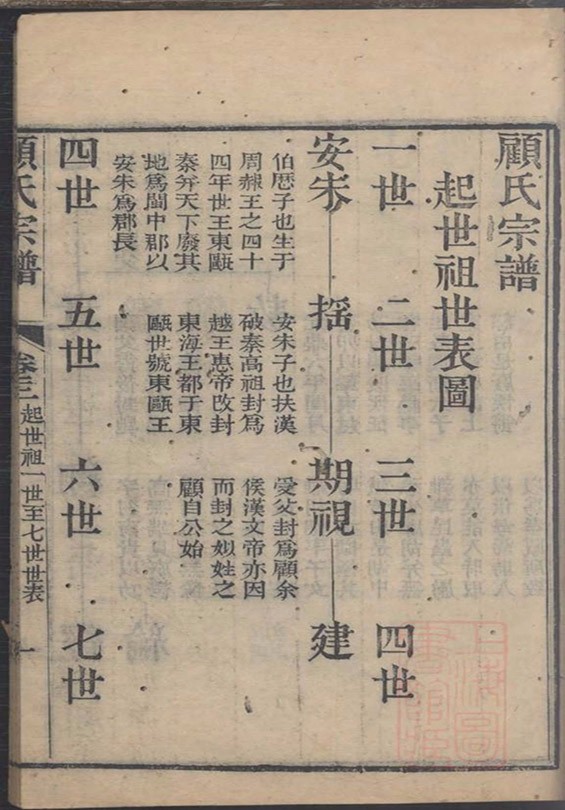 顧氏宗譜
起世祖世表圖
一世 二世 三世 四世
安朱 揺 期視 建
伯厯子也生于
周赧王之四十
四年世王東甌
秦并天下廢其
地爲閩中郡以
安朱爲郡長
安朱子也扶漢
破秦高祖封爲
越王惠帝改封
東海王都于東
甌世號東甌王
受父封爲顧余
侯漢文帝亦因
而封之姒姓之
顧自公始
四世 五世 六世 七世
顧氏宗譜
卷三
起世祖一世至七世世表
一
上海圖書館藏